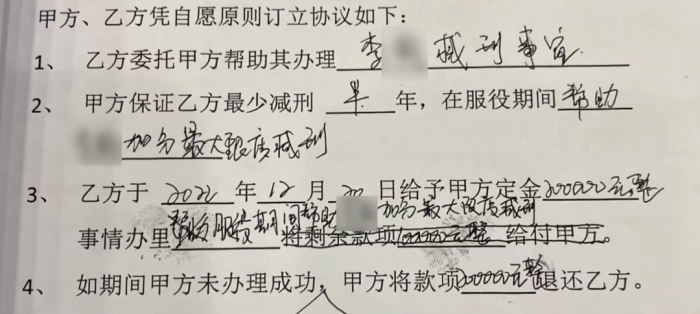 甲方、乙方凭自愿原则订立协议如下：
1、 乙方委托甲方帮助其办理 李 减刑事宜
2、 甲方保证乙方最少减刑 年，在服役期间 帮助
加分最大限度减刑
3、 乙方于 2022 年 12 月 20 日给予甲方定金 200000元整
服役期间帮助 加分最大限度减刑
事情办 将剩余款项 元整 给付甲方。
4、 如期间甲方未办理成功，甲方将款项 200000元整 退还乙方。